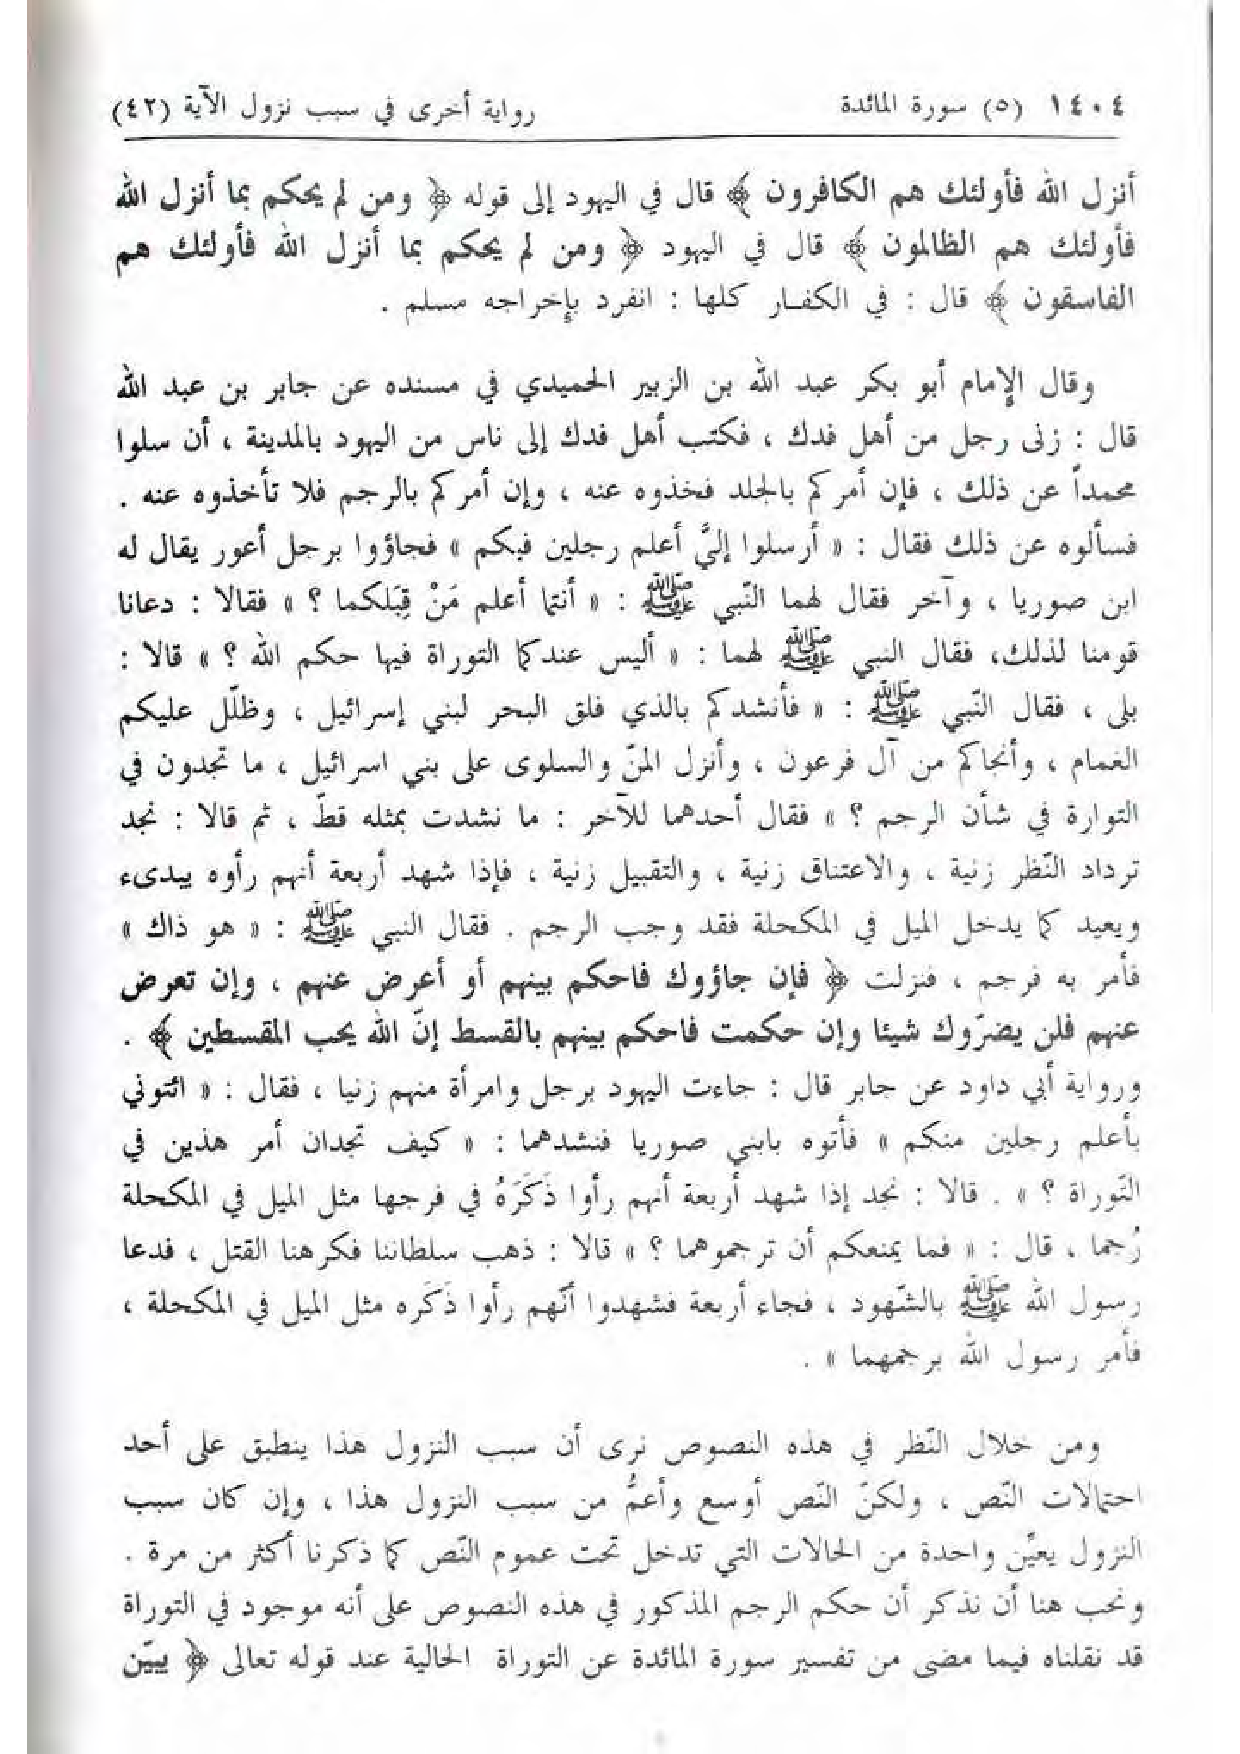 ١٤٠٤ (٥) سورة المائدة رواية أخرى في سبب نزول الآية (٤٢)
أنزل الله فأولئك هم الكافرون ﴾ قال في اليهود إلى قوله ﴿ ومن لم يحكم بما أنزل الله
فأولئك هم الظالمون ﴾ قال في اليهود ﴿ ومن لم يحكم بما أنزل الله فأولئك هم
الفاسقون ﴾ قال : في الكفار كلها : انفرد بإخراجه مسلم .
وقال الإمام أبو بكر عبد الله بن الزبير الحميدي في مسنده عن جابر بن عبد الله
قال : زنى رجل من أهل فدك ، فكتب أهل فدك إلى ناس من اليهود بالمدينة ، أن سلوا
محمداً عن ذلك ، فإن أمركم بالجلد فخذوه عنه ، وإن أمركم بالرجم فلا تأخذوه عنه .
فسألوه عن ذلك فقال : « أرسلوا إليَّ أعلم رجلين فيكم » فجاؤوا برجل أعور يقال له
ابن صوريا ، وآخر فقال لهما النّبي ﷺ : « أنتما أعلم مَنْ قِبَلكما ؟ » فقالا : دعانا
قومنا لذلك، فقال النبي ﷺ لهما : « أليس عندكما التوراة فيها حكم الله ؟ » قالا :
بلى ، فقال النّبي ﷺ : « فأنشدكم بالذي فلق البحر لبني إسرائيل ، وظلّل عليكم
الغمام ، وأنجاكم من آل فرعون ، وأنزل المنّ والسلوى على بني اسرائيل ، ما تجدون في
التوارة في شأن الرجم ؟ » فقال أحدهما للآخر : ما نشدت بمثله قطّ ، ثم قالا : نجد
ترداد النّظر زنية ، والاعتناق زنية ، والتقبيل زنية ، فإذا شهد أربعة أنهم رأوه يبدىء
ويعيد كما يدخل الميل في المكحلة فقد وجب الرجم . فقال النبي ﷺ : « هو ذاك »
فأمر به فرجم ، فنزلت ﴿ فإن جاؤوك فاحكم بينهم أو أعرض عنهم ، وإن تعرض
عنهم فلن يضرّوك شيئا وإن حكمت فاحكم بينهم بالقسط إنّ الله يحب المقسطين ﴾ .
ورواية أبي داود عن جابر قال : جاءت اليهود برجل وامرأة منهم زنيا ، فقال : « ائتوني
بأعلم رجلين منكم » فأتوه بابني صوريا فنشدهما : « كيف تجدان أمر هذين في
التّوراة ؟ » . قالا : نجد إذا شهد أربعة أنهم رأوا ذَكَرَهُ في فرجها مثل الميل في المكحلة
رُجما ، قال : « فما يمنعكم أن ترجموهما ؟ » قالا : ذهب سلطاننا فكرهنا القتل ، فدعا
رسول الله ﷺ بالشّهود ، فجاء أربعة فشهدوا أنّهم رأوا ذَكَره مثل الميل في المكحلة ،
فأمر رسول الله برجمهما » .
ومن خلال النّظر في هذه النصوص نرى أن سبب النزول هذا ينطبق على أحد
احتمالات النّص ، ولكنّ النّص أوسع وأعمُّ من سبب النزول هذا ، وإن كان سبب
النزول يعيِّن واحدة من الحالات التي تدخل تحت عموم النّص كما ذكرنا أكثر من مرة .
ونحب هنا أن نذكر أن حكم الرجم المذكور في هذه النصوص على أنه موجود في التوراة
قد نقلناه فيما مضى من تفسير سورة المائدة عن التوراة الحالية عند قوله تعالى ﴿ يبيّن